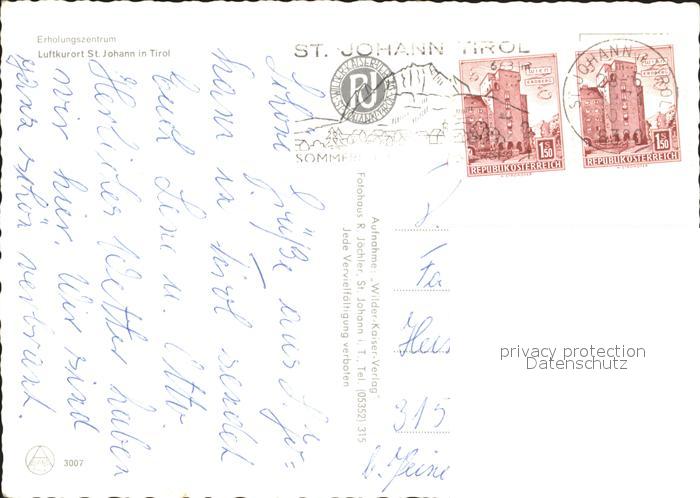 Erholungszentrum
Luftkurort St. Johann in Tirol
Schöne Grüße aus St. Jo=
hann in Tirol sendet
Euch Lene u. Otto.
Herrliches Wetter haben
wir hier. Wir sind
ganz schön verbrannt.
3007
Aufnahme: „Wilder-Kaiser-Verlag"
Fotohaus R. Jöchler, St. Johann i. T., Tel. (05352) 315
Jede Vervielfältigung verboten
ST. JOHANN TIROL
SOMMER
ST. JOHANN
WIEN
ERDBERG
1.50
REPUBLIK ÖSTERREICH
WIEN
ERDBERG
1.50
REPUBLIK ÖSTERREICH
Fa
315
privacy protection
Datenschutz